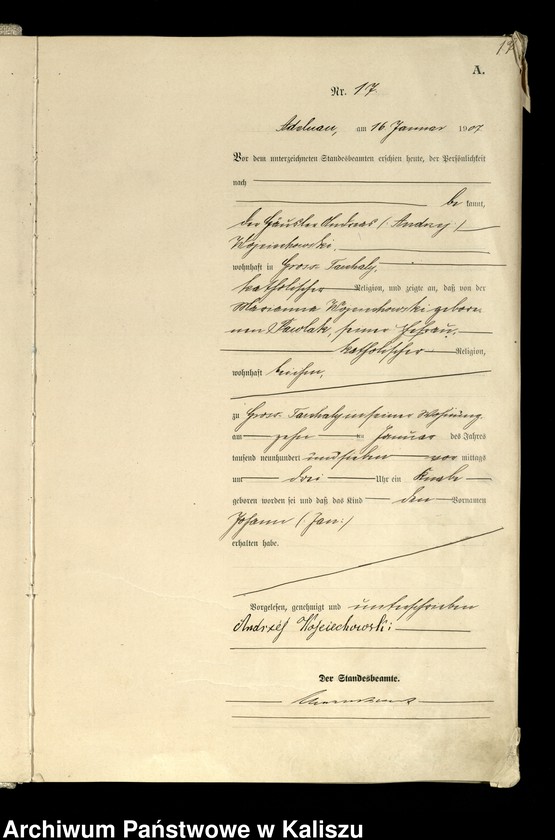 17
A.
Nr. 17
Adelnau, am 16 Januar 1907
Vor dem unterzeichneten Standesbeamten erschien heute, der Persönlichkeit
nach
be kannt,
der Häusler Andreas (: Andrzej :)
Wojciechowski
wohnhaft in Gross Tarchaly
katholischer Religion, und zeigte an, daß von der
Marianna Wojciechowski gebore-
nen Pawlak, seiner Ehefrau,
katholischer Religion,
wohnhaft bei ihm,
zu Gross Tarchaly in seiner Wohnung
am zehn ten Januar des Jahres
tausend neunhundert und sieben vor mittags
um drei Uhr ein Knabe
geboren worden sei und daß das Kind den Vornamen
Johann (: Jan :)
erhalten habe.
Vorgelesen, genehmigt und unterschrieben
Andrzéj Wojciechowski
Der Standesbeamte.
Archiwum Państwowe w Kaliszu